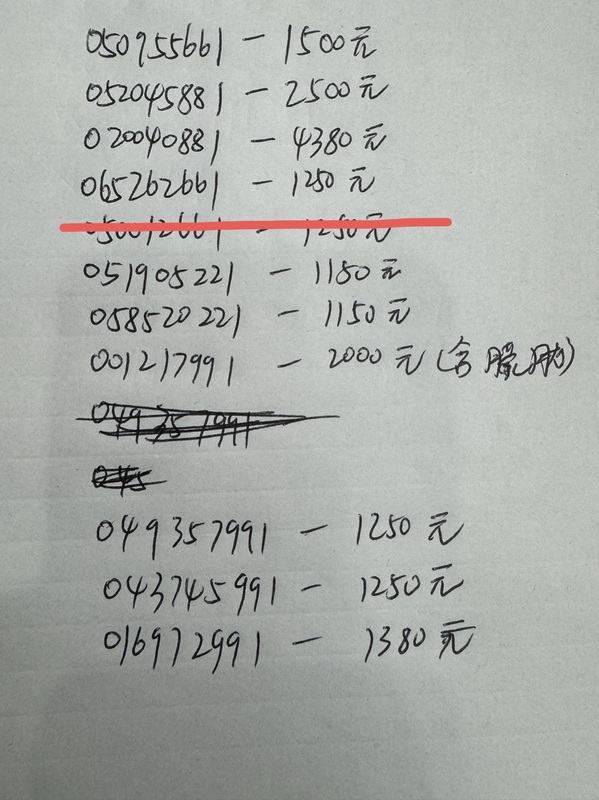 050955661 - 1500元
052045881 - 2500元
020040881 - 4380元
065262661 - 1250元
- 1250元
051905221 - 1180元
058520221 - 1150元
001217991 - 2000元(含
049357991
045
049357991 - 1250元
043745991 - 1250元
016972991 - 1380元